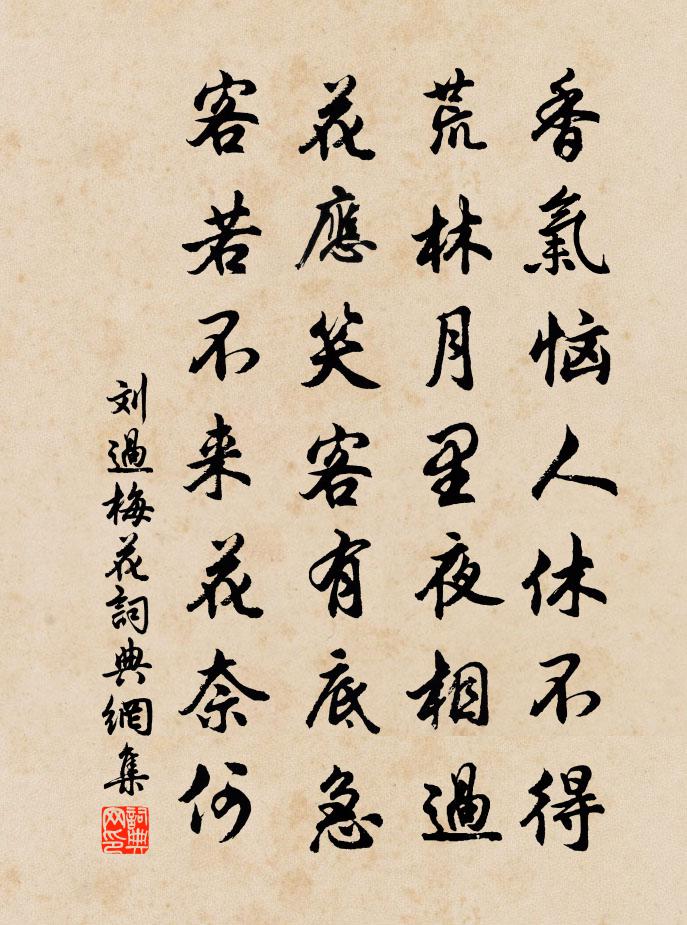 香氣惱人休不得
荒林月里夜相過
花應笑客有底急
客若不来花奈何
刘過梅花詞典網集
詞典网印